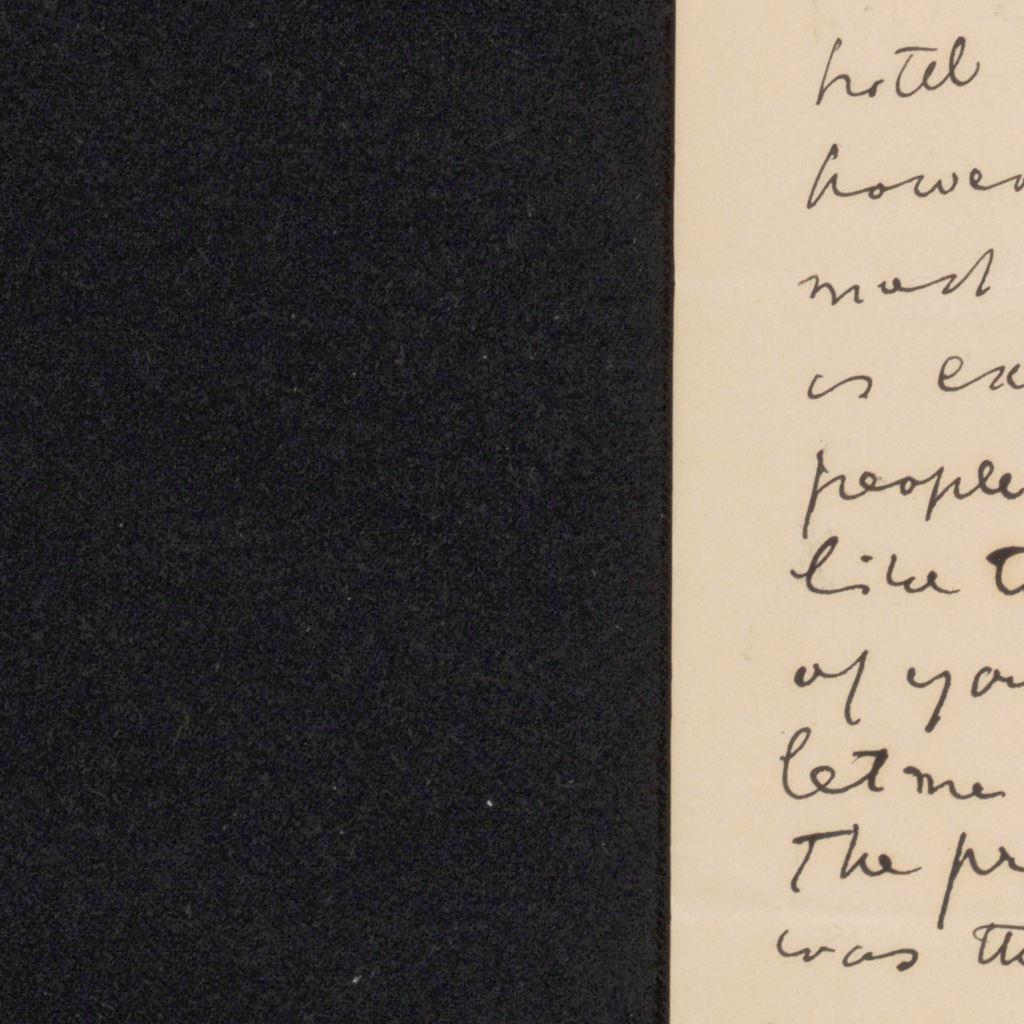 hotel
howev
most
is ex
people
like t
of you
let me
The pr
was th